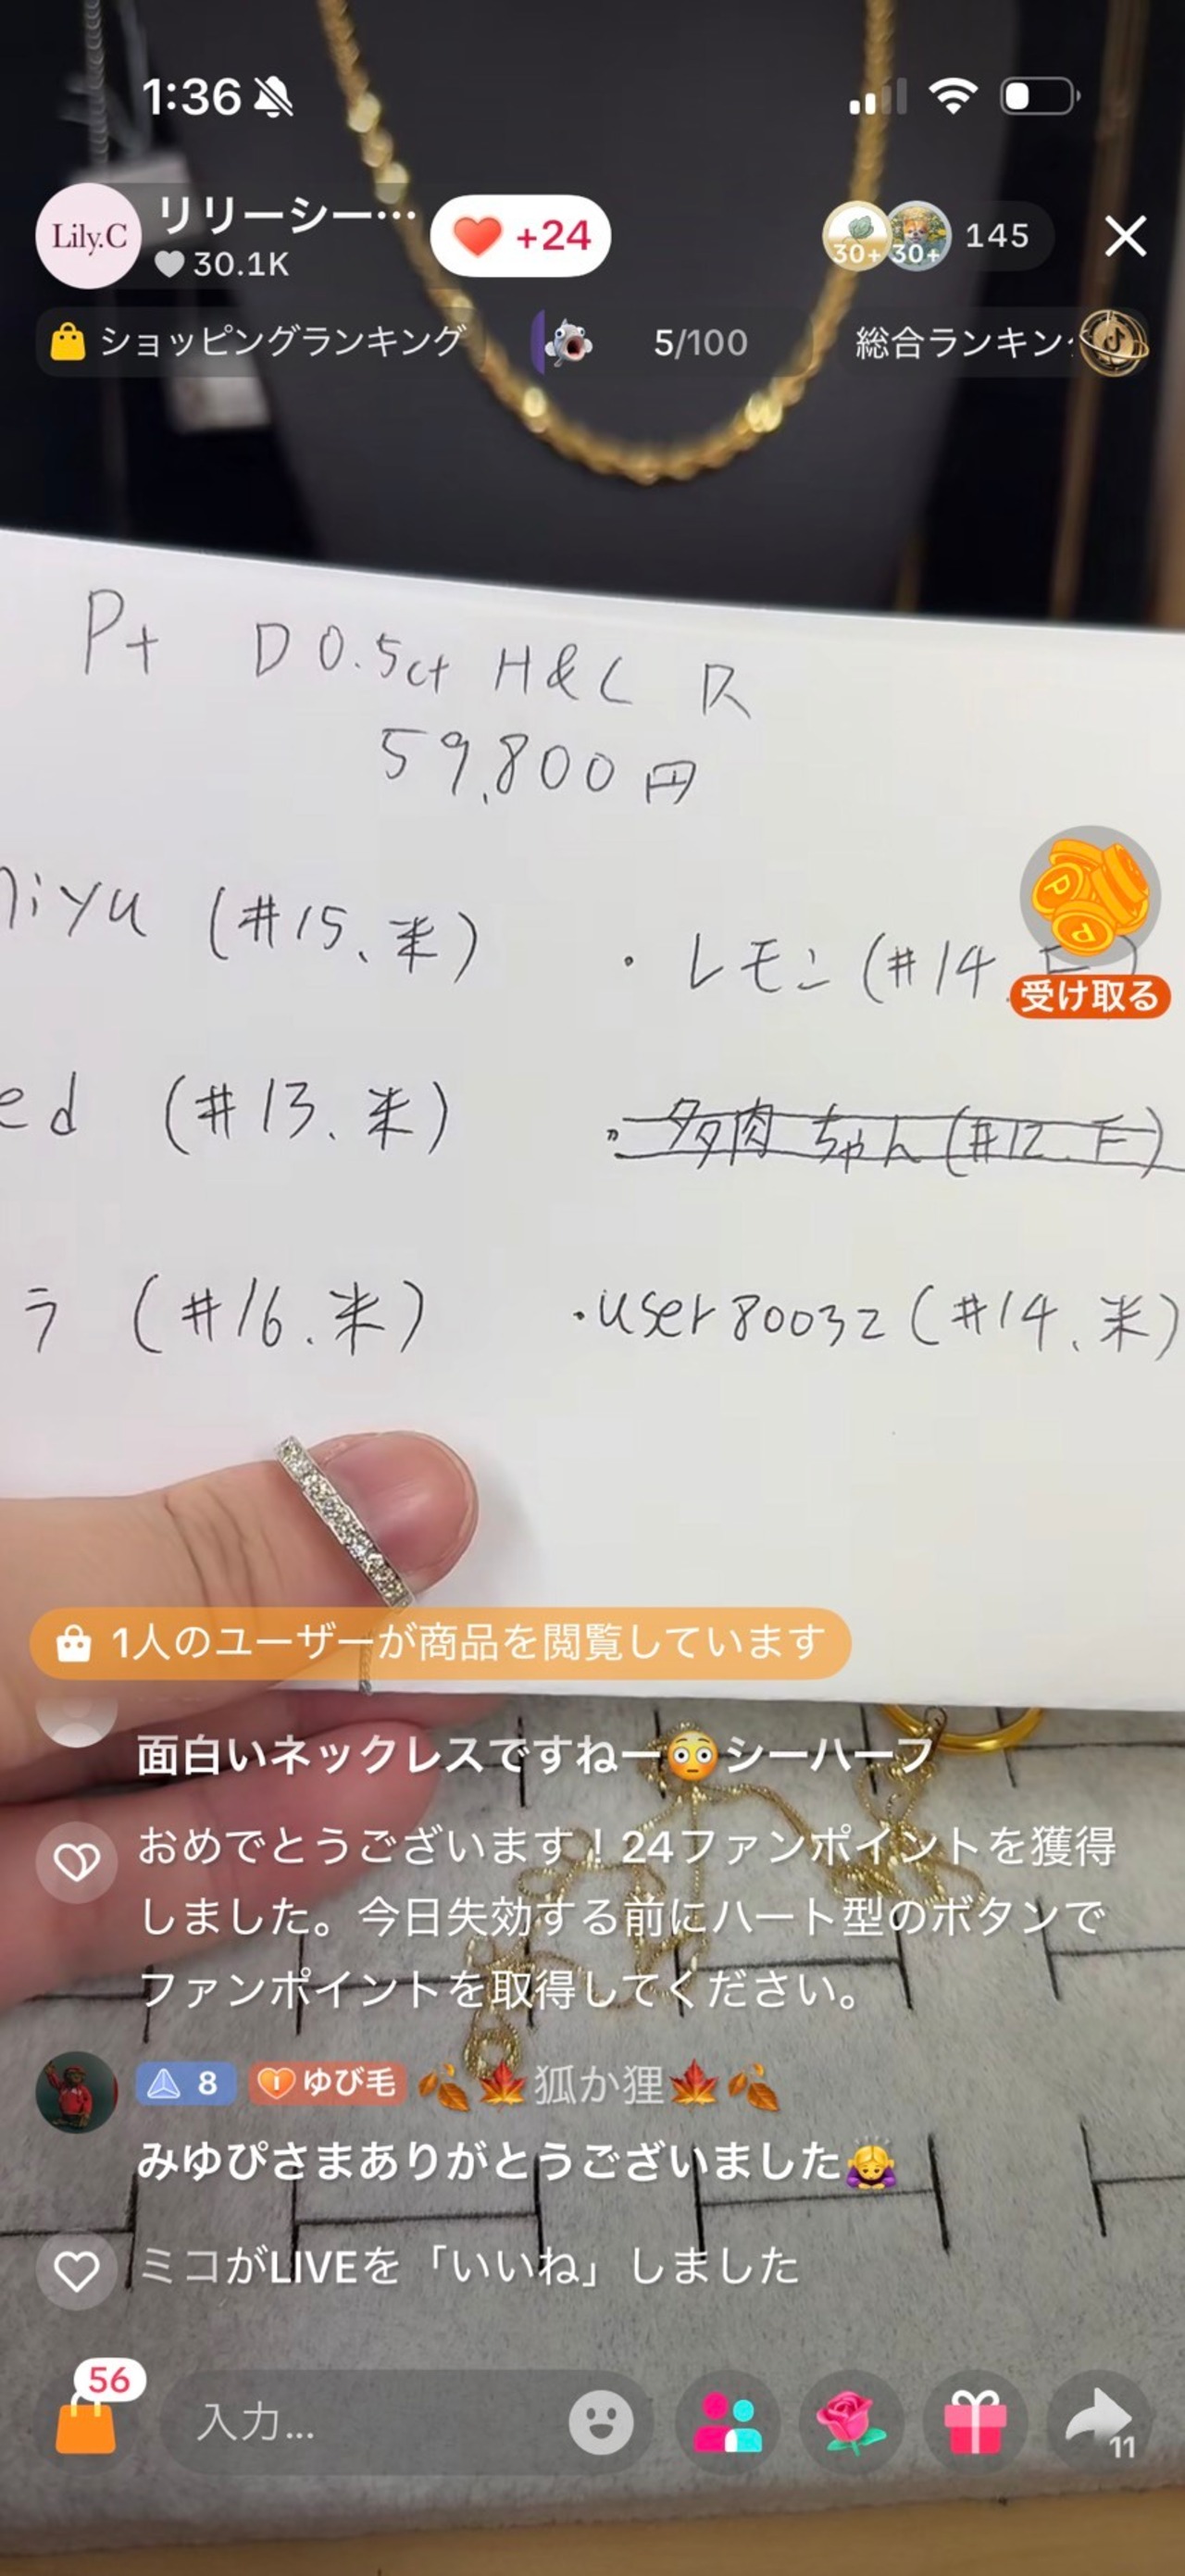 1:36
Lily.C
リリーシー…
30.1K
+24
30+
30+
145
ショッピングランキング
5/100
総合ランキン
Pt D 0.5ct H&C R
59,800円
iyu (#15、米)
・レモン (#14
受け取る
ed (#13、米)
多肉ちゃん (#12、F)
ラ (#16、米)
・user80032 (#14、米)
1人のユーザーが商品を閲覧しています
面白いネックレスですねー😳シーハーフ
おめでとうございます！24ファンポイントを獲得
しました。今日失効する前にハート型のボタンで
ファンポイントを取得してください。
8 I ゆび毛 🍂🍁狐か狸🍁🍂
みゆぴさまありがとうございました🙇‍♀️
ミコがLIVEを「いいね」しました
56
入力...
11